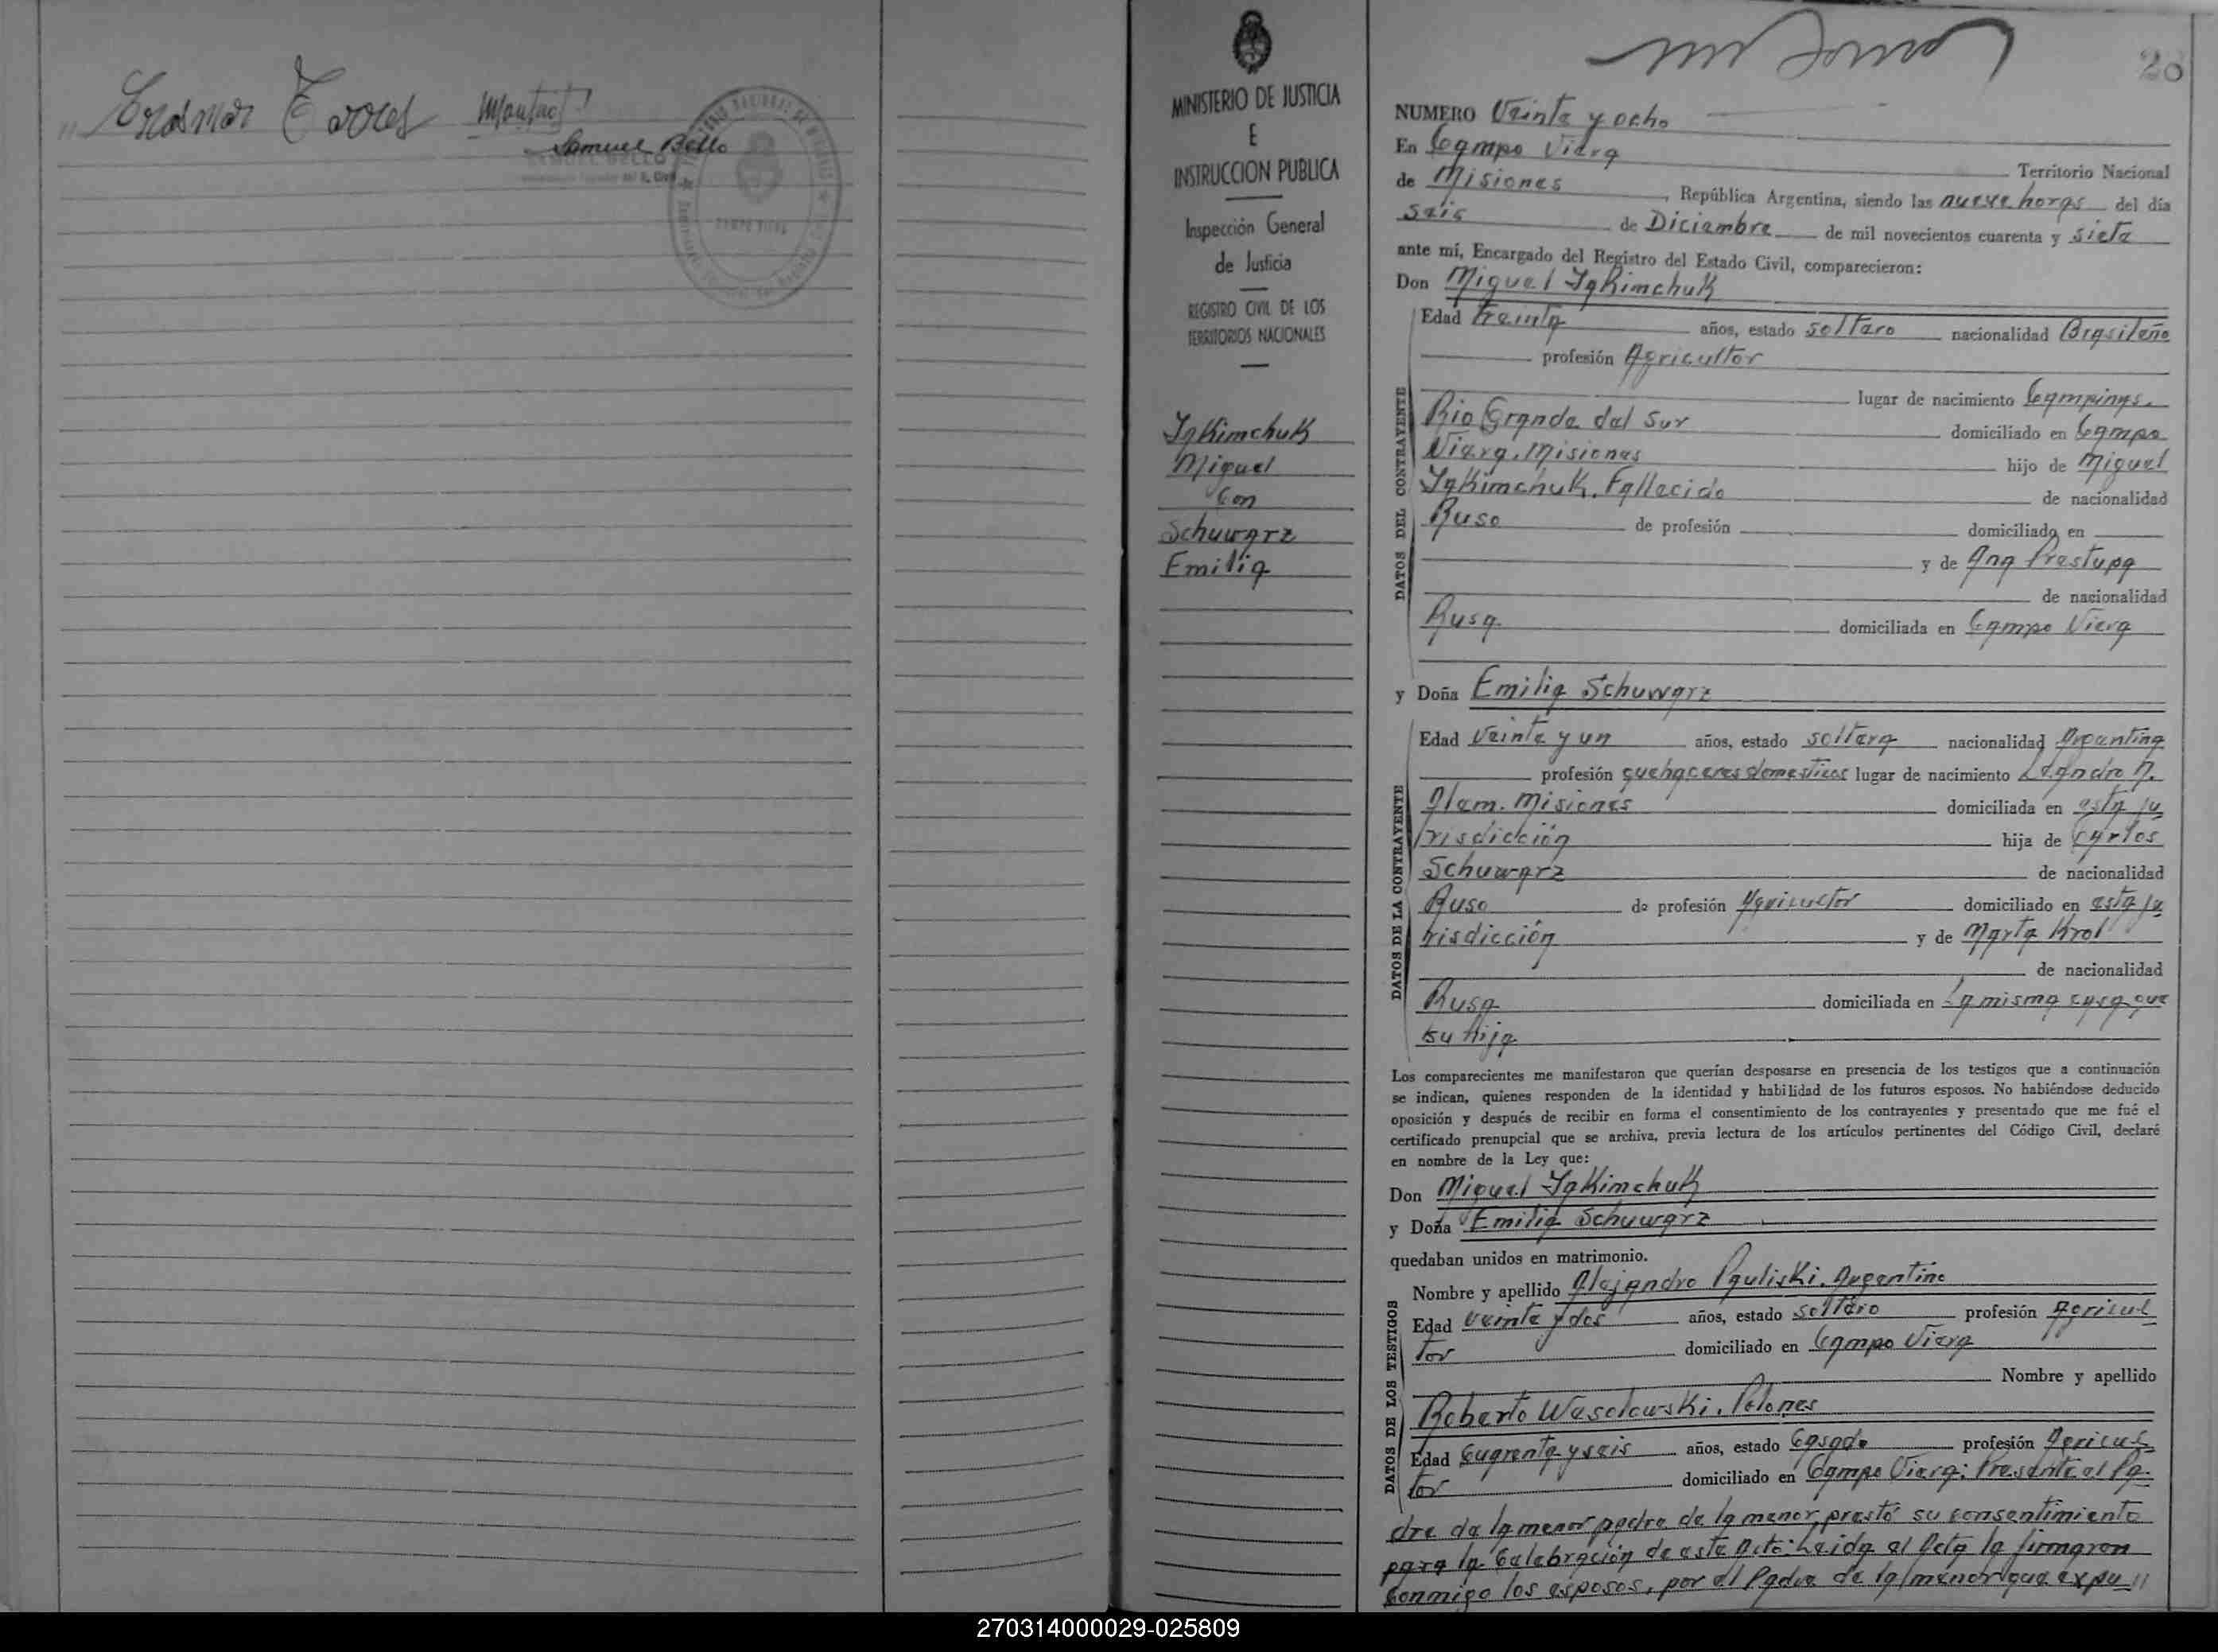 Samuel Bello
SAMUEL BELLO
20
MINISTERIO DE JUSTICIA
E
INSTRUCCION PUBLICA
Inspección General
de Justicia
REGISTRO CIVIL DE LOS
TERRITORIOS NACIONALES
Iakimchuk
Miguel
Con
Schuwarz
Emilia
NUMERO Veinte y ocho
En Campo Viera
Territorio Nacional
de Misiones, República Argentina, siendo las nueve horas del día
seis de Diciembre de mil novecientos cuarenta y siete
ante mí, Encargado del Registro del Estado Civil, comparecieron:
Don Miguel Iakimchuk
DATOS DEL CONTRAYENTE
Edad treinta años, estado soltero nacionalidad Brasileño
profesión Agricultor
lugar de nacimiento Campinas.
Rio Grande del Sur domiciliado en Campo
Viera. Misiones hijo de Miguel
Iakimchuk. Fallecido de nacionalidad
Ruso de profesión domiciliado en
y de Ana Prestupa
de nacionalidad
Rusa. domiciliada en Campo Viera
y Doña Emilia Schuwarz
DATOS DE LA CONTRAYENTE
Edad Veinte y un años, estado soltera nacionalidad Argentina
profesión quehaceres domesticos lugar de nacimiento Leandro N.
Alem. Misiones domiciliada en esta ju
risdicción hija de Carlos
Schuwarz de nacionalidad
Ruso de profesión Agricultor domiciliado en esta ju
risdicción y de Marta Krol
de nacionalidad
Rusa domiciliada en La misma casa que
su hija
Los comparecientes me manifestaron que querían desposarse en presencia de los testigos que a continuación
se indican, quienes responden de la identidad y habilidad de los futuros esposos. No habiéndose deducido
oposición y después de recibir en forma el consentimiento de los contrayentes y presentado que me fué el
certificado prenupcial que se archiva, previa lectura de los artículos pertinentes del Código Civil, declaré
en nombre de la Ley que:
Don Miguel Iakimchuk
y Doña Emilia Schuwarz
quedaban unidos en matrimonio.
DATOS DE LOS TESTIGOS
Nombre y apellido Alejandro Pauliski. Argentino
Edad veinte y dos años, estado soltero profesión Agricul
tor domiciliado en Campo Viera
Nombre y apellido
Roberto Wesolowski. Polones
Edad Cuarenta y seis años, estado Casado profesión Agricul
tor domiciliado en Campo Viera; Presente el Pa-
dre de la menor padre de la menor, prestó su consentimiento
para la Celebración de este Acto: Leida el Acta la firmaron
conmigo los esposos, por el Padre de la menor que expu "
270314000029-025809